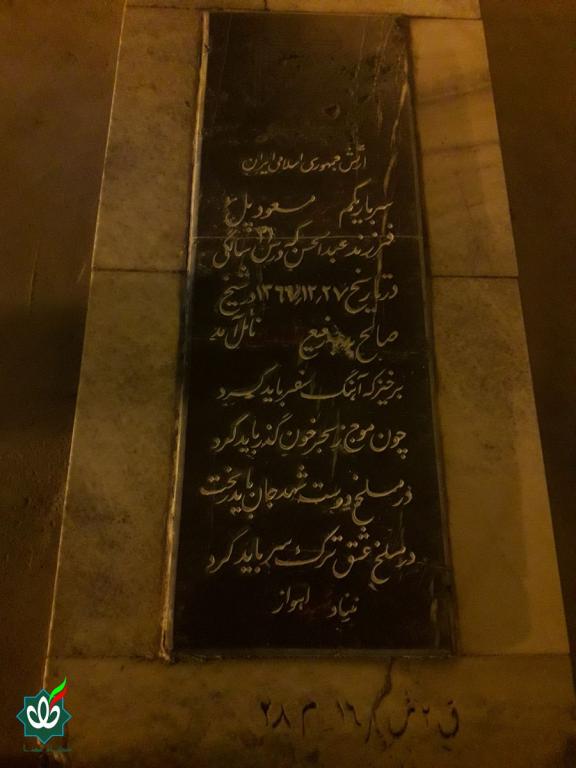 ارتش جمهوری اسلامی ایران
سرباز یکم مسعود
فرزند عبدالحسن که در سن سالگی
در تاریخ ۱۳۶۹/۱۲/۲۷ در شیخ
صالح رفیع نائل آمد
برخیز که آهنگ سفر باید کرد
چون موج ز بحر خون گذر باید کرد
در مسلخ دوست شهد جان باید ریخت
در مسلخ عشق ترک سر باید کرد
اهواز
ق ۲ ش ۱۶ م ۲۸